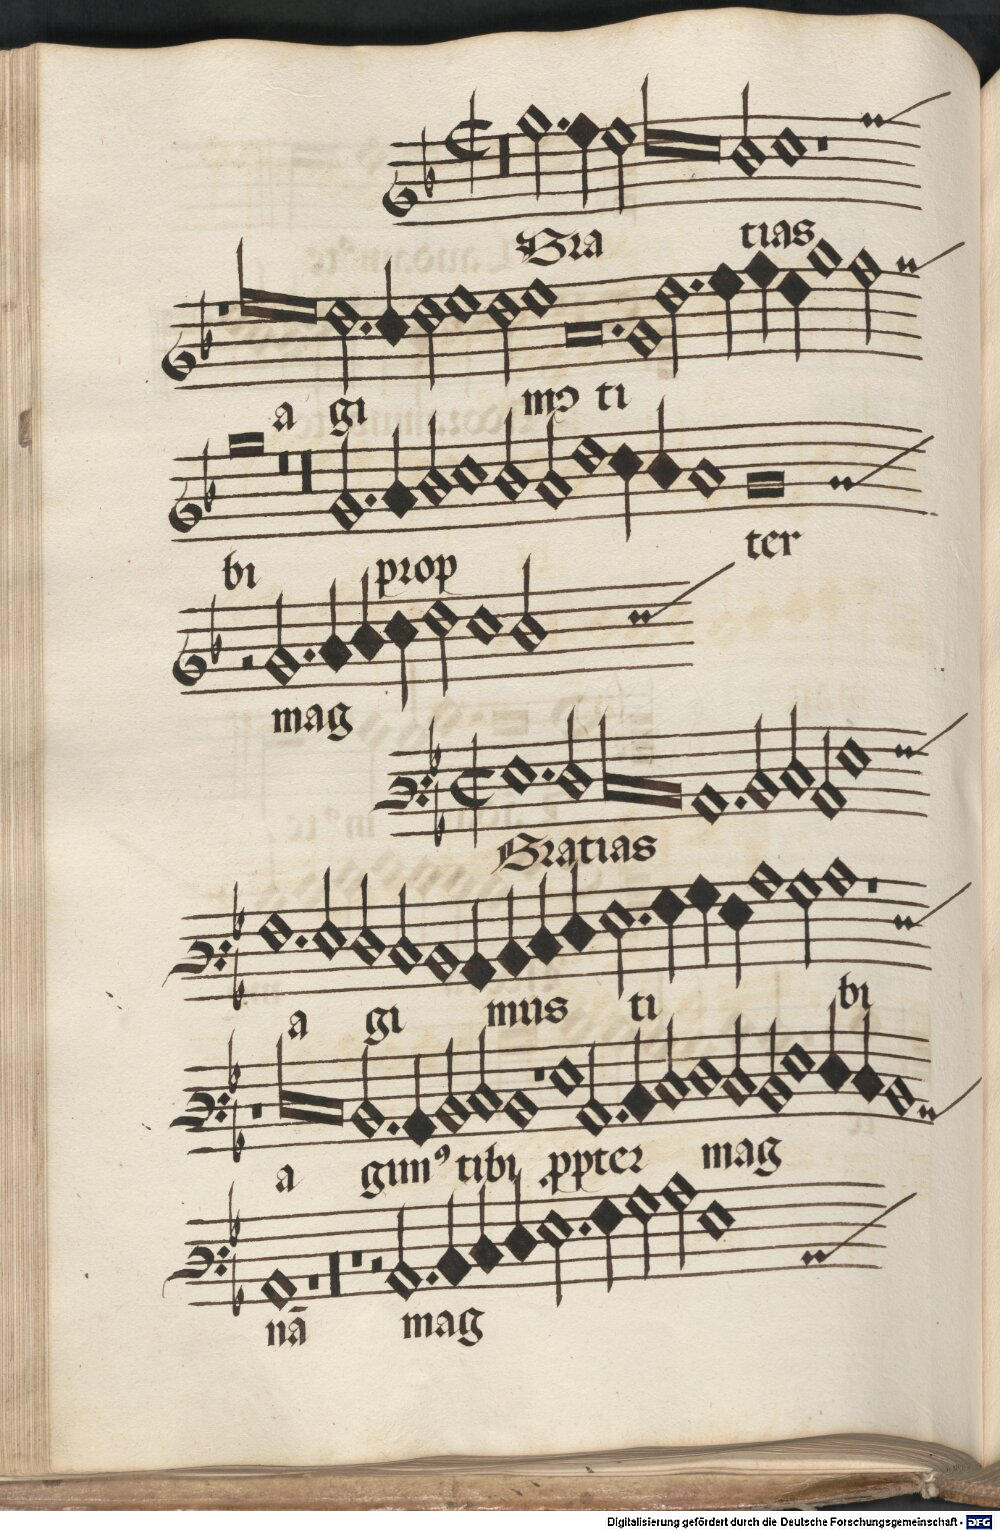 Gra tias
a gi mꝰ ti
bi prop ter
mag
Gratias
a gi mus ti bi
a gimꝰ tibi ꝓpter mag
nā mag
Digitalisierung gefördert durch die Deutsche Forschungsgemeinschaft - DFG